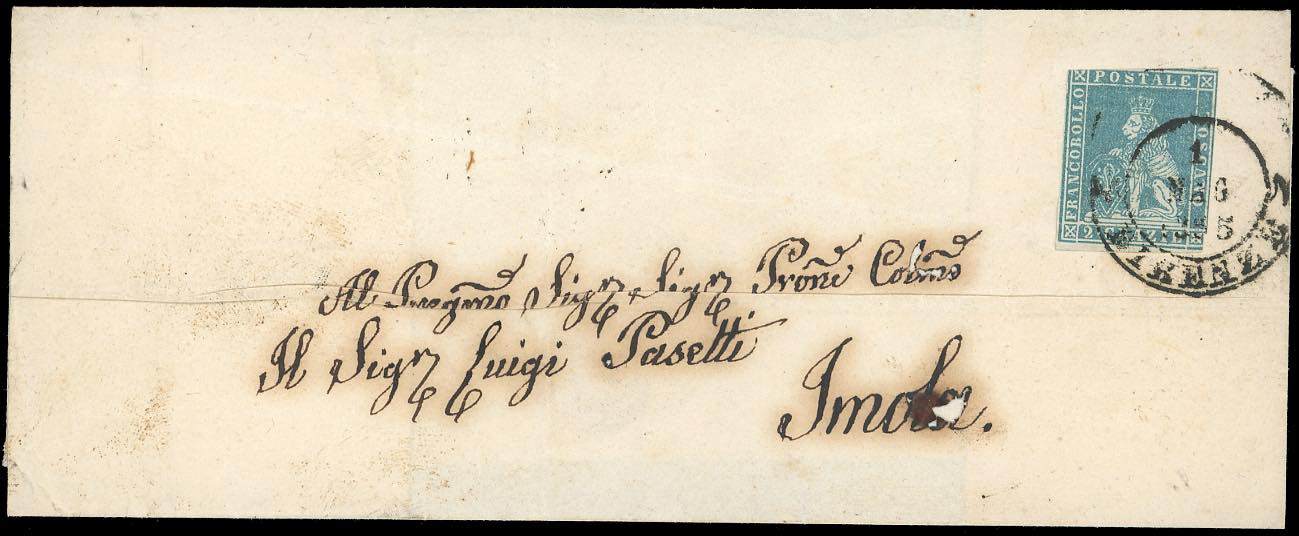 FRANCOBOLLO
POSTALE
TOSCANO
2
1
MAG
FIRENZE
Al Pregmo Sigr Sigr Prone Colmo
Il Sigr Luigi Pasetti
Imola.